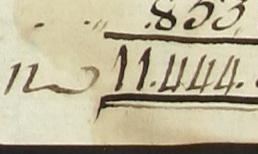 .853,
11.444.